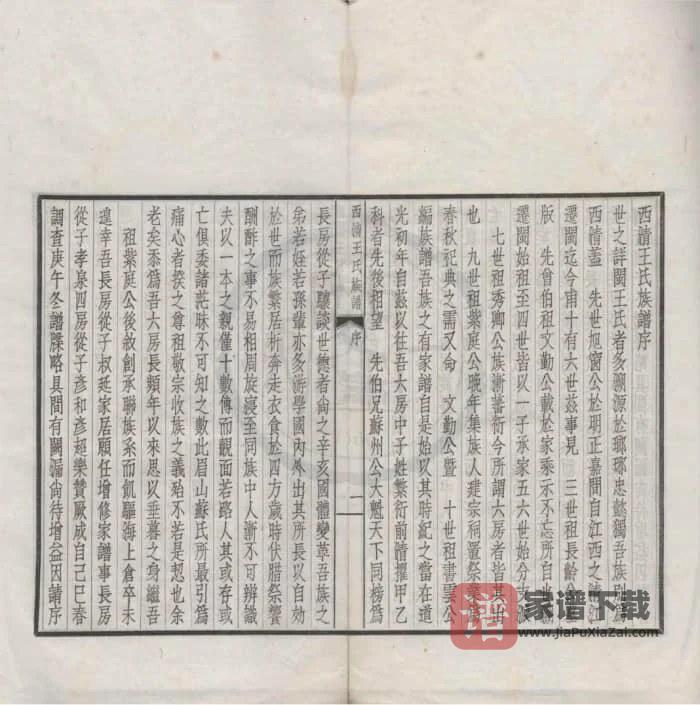 西清王氏族譜序
世之詳閩王氏者多溯源於瑯琊忠懿獨吾族別
西清葢　先世旭窗公於明正嘉間自江西之清江
遷閩迄今甫十有六世茲事見　三世祖長齡公
版　先曾伯祖文勤公載於家乘示不忘所自也
遷閩始祖至四世皆以一子承家五六世始分支派
七世祖秀卿公族漸蕃衍今所謂六房者皆其出
也　九世祖紫庭公晚年集族人建宗祠置祭業為
春秋祀典之需又命　文勤公暨　十世祖書雲公
編族譜吾族之有家譜自是始以其時紀之當在道
光初年自茲以往吾六房中子姓繁衍前清擢甲乙
科者先後相望　先伯兄蘇州公大魁天下同榜為
西清王氏族譜　序　一
長房從子驤談世德者尚之辛亥國體變革吾族之
弟若姪若孫輩亦多游學國內外出其所長以自効
於世而族繁居析奔走衣食於四方歲時伏臘祭饗
酬酢之事不易相周旋寖至同族中人漸不可辨識
夫以一本之親僅十數傳而覿面若路人其或存或
亡俱委諸茫昧不可知之數此眉山蘇氏所最引為
痛心者揆之尊祖敬宗收族之義殆不若是恝也余
老矣忝為吾六房長頻年以來思以垂暮之身繼吾
祖紫庭公後敘創承聯族系而飢驅海上倉卒未
遑幸吾長房從子叔廷家居願任增修家譜事長房
從子孝泉四房從子彥和彥超樂贊厥成自己巳春
調查庚午冬譜牒略具間有闕漏尚待增益因請序
譜
家谱下载
www.jiaPuXiaZai.com